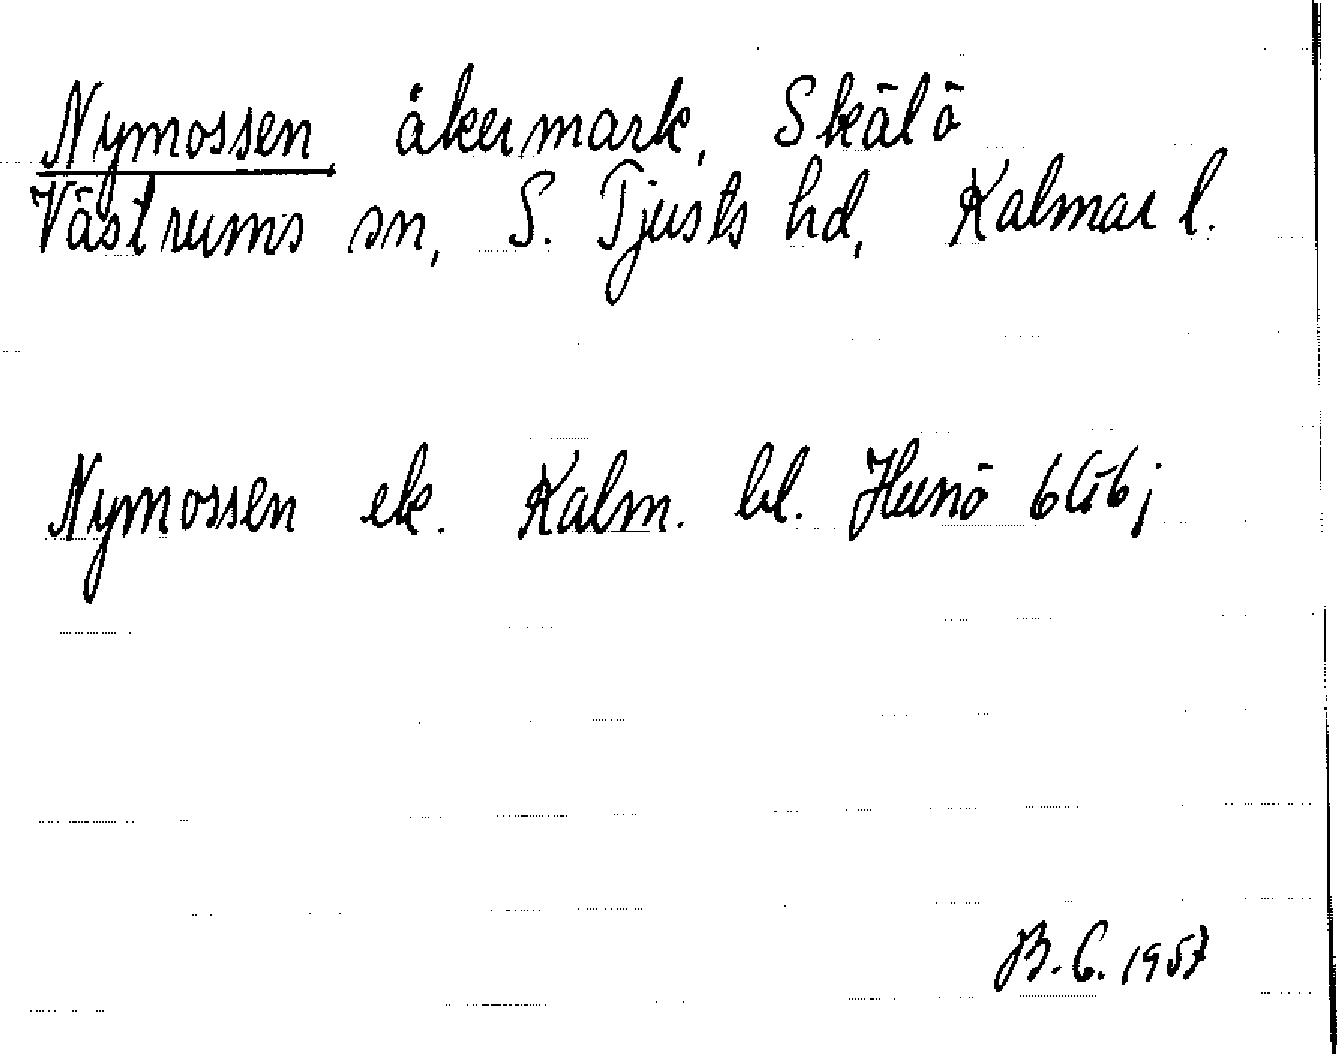 Nymossen, åkermark, Skälö
Västrums sn, S. Tjusts hd, Kalmar l.
Nymossen ek. Kalm. bl. Hunö 6G6j
B.C. 1957